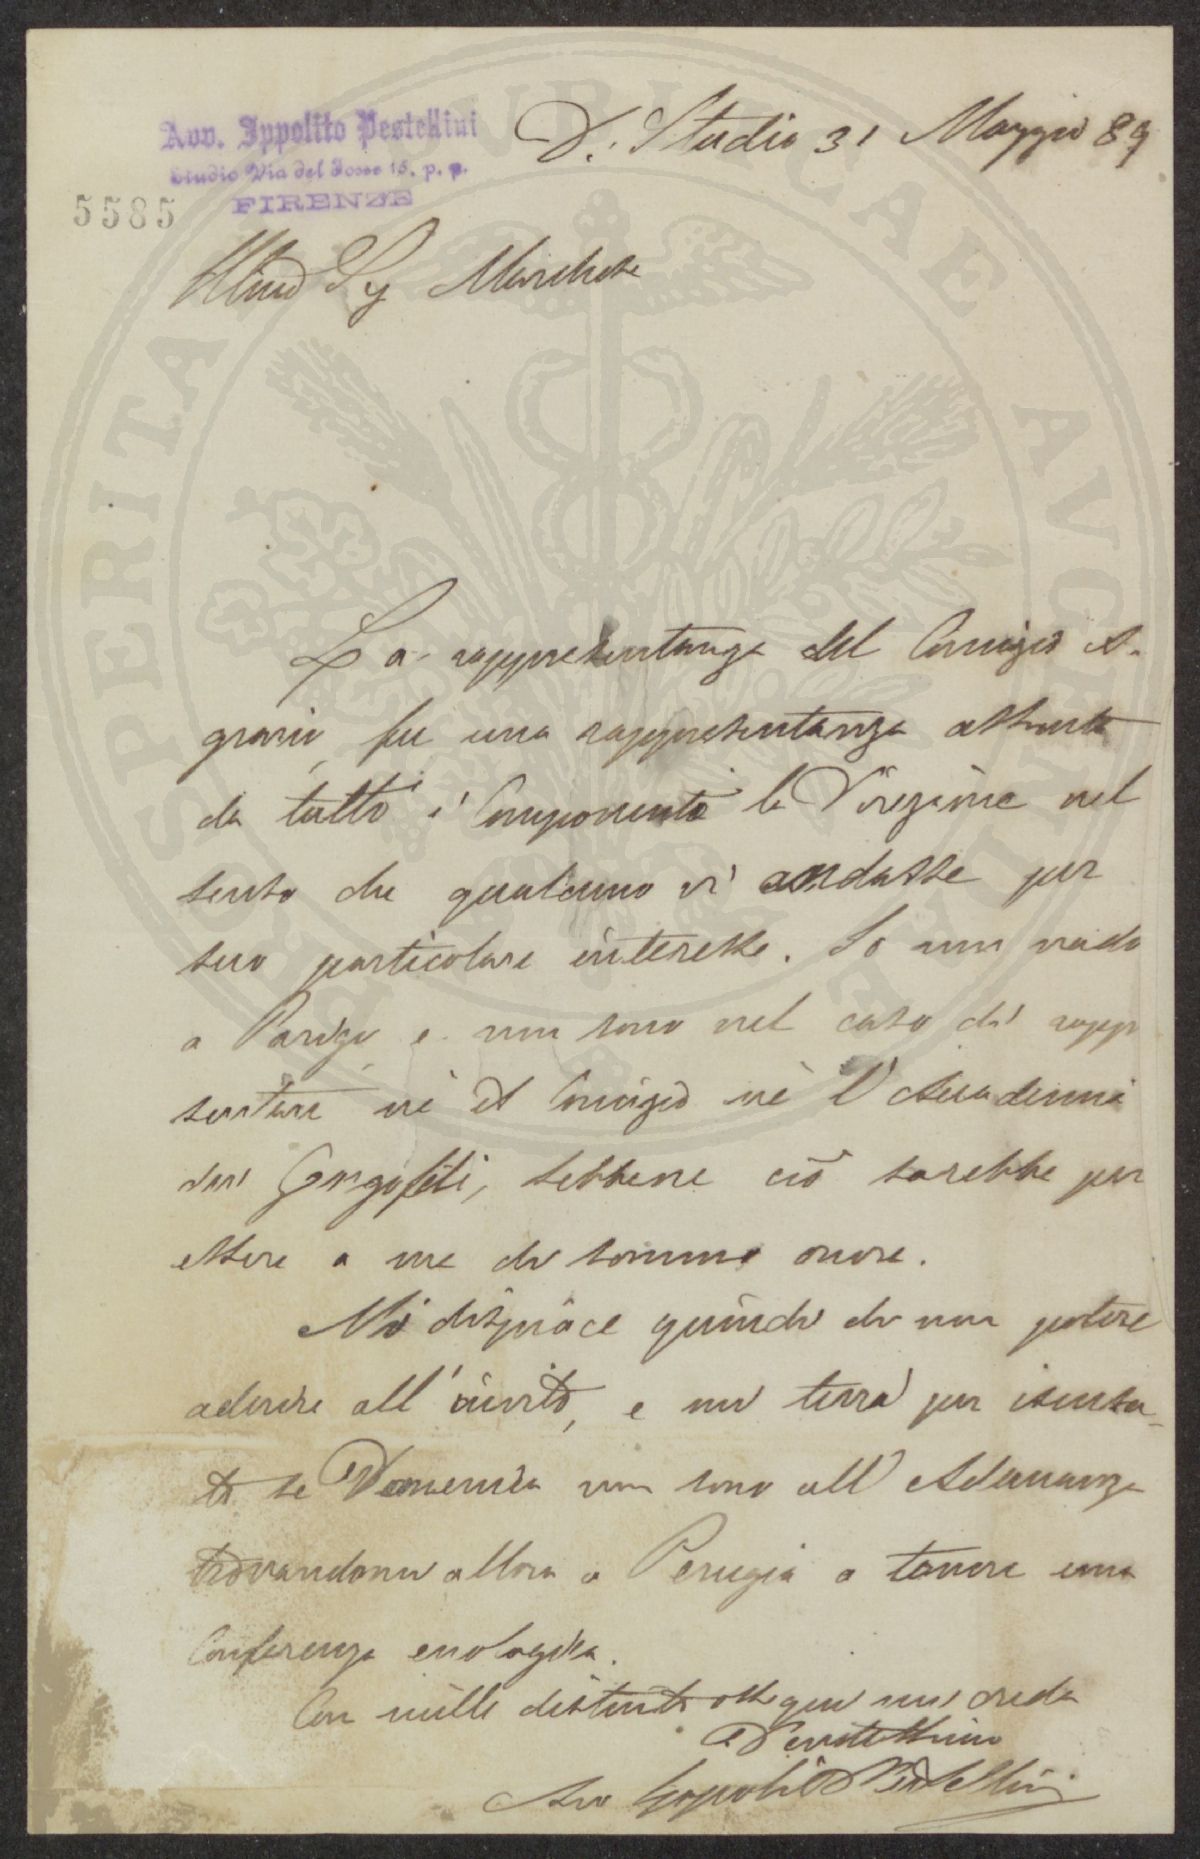 Avv. Ippolito Pestellini
Studio Via del Fosso 15. p. p.
FIRENZE
5585
D. Studio 31 Maggio 89
Illmo Sig Marchese
La rappresentanza del Comizio A-
grario, fu una rappresentanza assunta
da tutti i Componenti la Direzione nel
senso che qualcuno vi andasse per
suo particolare interesse. Io non vado
a Parigi, e non sono nel caso di rappre
sentare nè il Comizio nè l'Accademia
dei Georgofili, sebbene ciò sarebbe per
essere a me di sommo onore.
Mi dispiace quindi di non potere
aderire all'invito, e mi terrà per iscusa-
to se Domenica non sono all'Adunanza
trovandomi allora a Perugia a tenere una
Conferenza enologica.
Con mille distinti ossequi mi creda
Devotissimo
Avv Ippolito Pestellini
PROSPERITATI PUBLICAE AUGENDAE